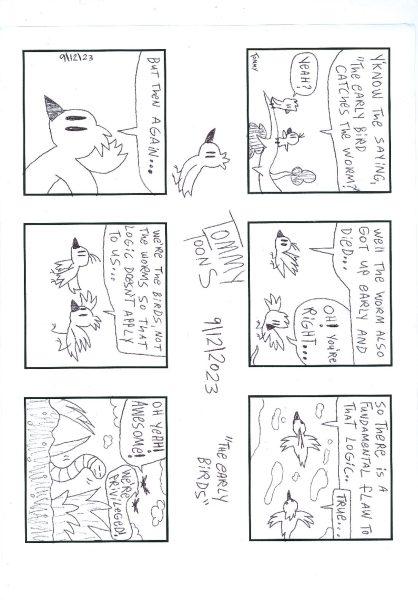 Y'KNOW THE SAYING,
"THE EARLY BIRD
CATCHES THE WORM?
YEAH?
TOMMY
WELL THE WORM ALSO
GOT UP EARLY AND
DIED...
OH! YOU'RE
RIGHT...
SO THERE IS A
FUNDAMENTAL FLAW TO
THAT LOGIC..
TRUE...
TOMMY
TOONS
9/12/2023
"THE EARLY
BIRDS"
BUT THEN AGAIN...
9/12/23
WE'RE THE BIRDS, NOT
THE WORMS SO THAT
LOGIC DOESN'T APPLY
TO US...
OH YEAH!
AWESOME!
WE'RE
PRIVILEGED!